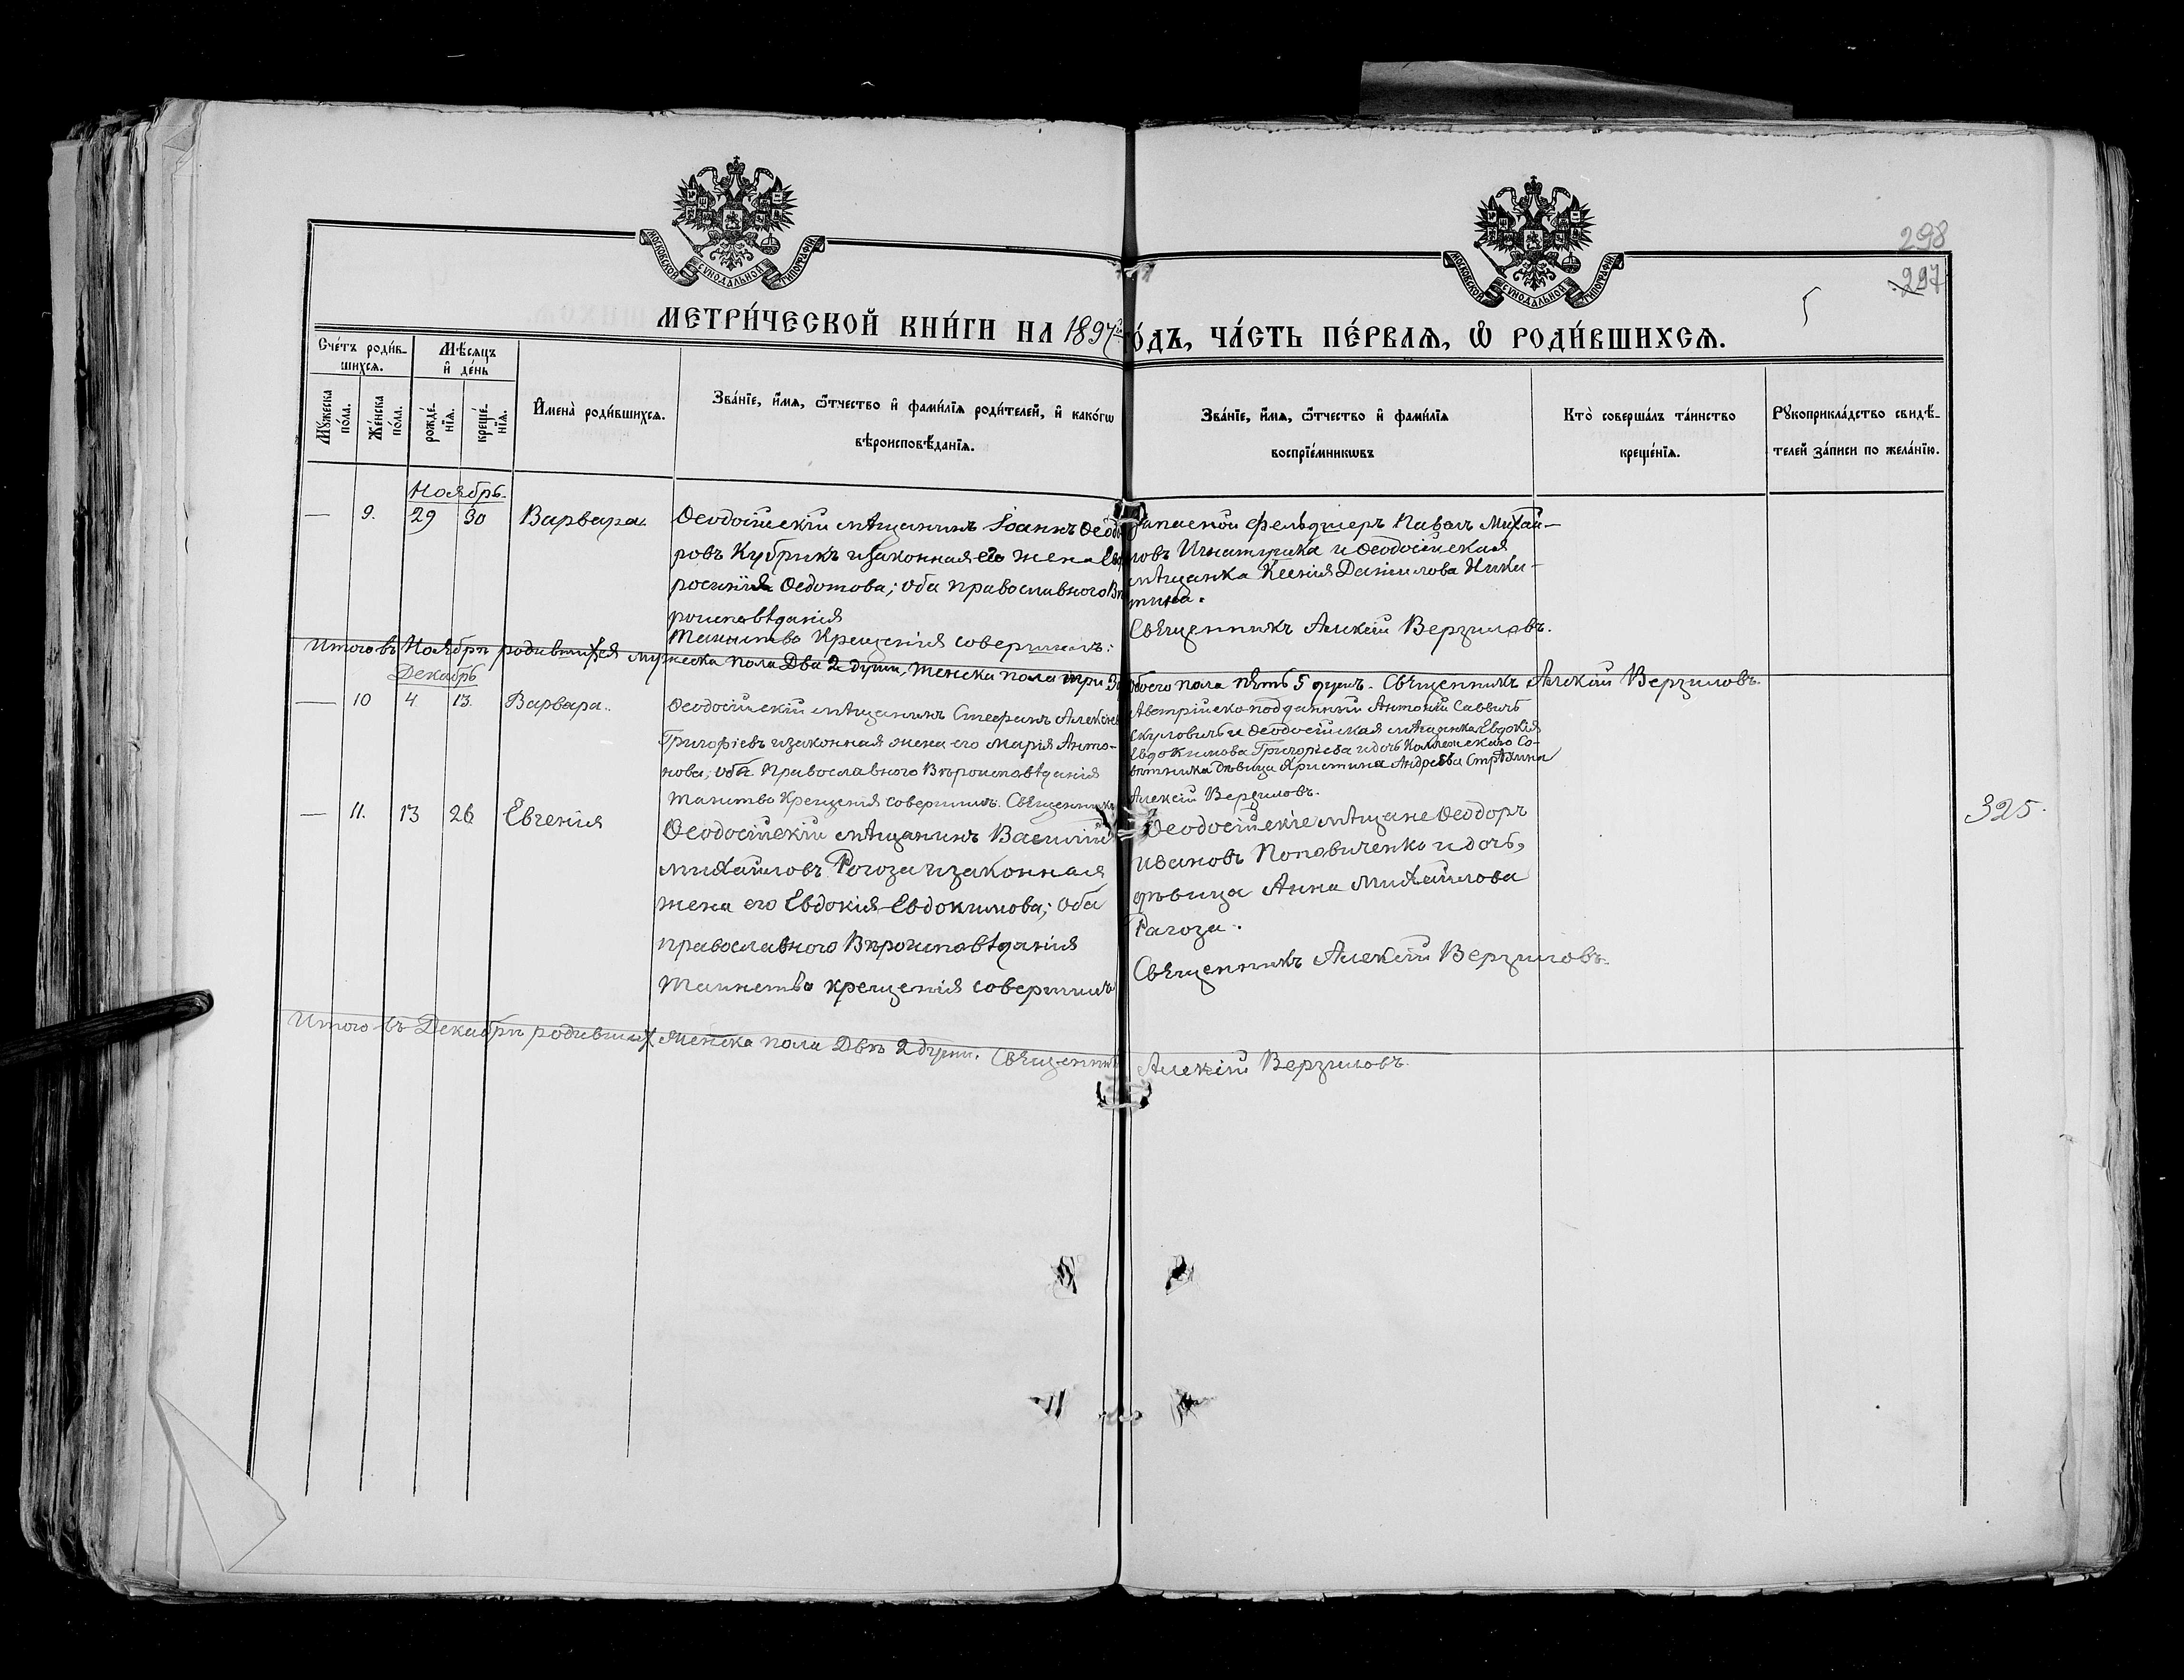 МОСКОВСКОЙ СѴНОДАЛЬНОЙ ТИПОГРАФІИ
МОСКОВСКОЙ СѴНОДАЛЬНОЙ ТИПОГРАФІИ
298
297
5
МЕТРИ́ЧЕСКОЙ КНИ́ГИ НА 1897й
О́ДЪ, ЧА́СТЬ ПЕ́РВАѦ, Ѡ҆ РОДИ́ВШИХСѦ.
Сче́тъ роди́в-
шихсѧ.
Мѣ́сѧцъ
и҆ де́нь
Мꙋ́жеска
по́ла.
Же́нска
по́ла.
рожде́-
нїѧ.
креще́-
нїѧ.
И҆мена̀ роди́вшихсѧ.
Зва́нїе, и҆́мѧ, ѻ҆́тчество и҆ фами́лїѧ роди́телей, и҆ како́гѡ
вѣроисповѣ́данїѧ.
Зва́нїе, и҆́мѧ, ѻ҆́тчество и҆ фами́лїѧ
воспрїе́мникѡвъ
Кто̀ соверша́лъ та́инство
креще́нїѧ.
Рꙋкоприкла́дство свидѣ́-
телей за́писи по жела́нїю.
Ноябрь
— 9. 29 30 Варвара.
Ѳеодосійскій мѣщанинъ Іоаннъ Ѳеодо
ровъ Кубрикъ и законная его жена Евф
росинія Ѳедотова; оба православного Вѣ
роисповѣданія
Таинство Крещенія совершилъ:
Запасной фельдшеръ Павелъ Михай-
ловъ Игнатушка и Ѳеодосійская
мѣщанка Ксенія Данилова Ники-
тина.
Священникъ Алексій Верзиловъ.
Итого въ Ноябрѣ родившихся мужеска пола Два 2 души, женска пола три 3
обоего пола пять 5 душъ. Священникъ Алексій Верзиловъ.
Декабрь
— 10 4 13. Варвара.
Ѳеодосійскій мѣщанинъ Стефанъ Алексѣевъ
Григорьевъ и законная жена его Марія Анто-
нова, оба Православного Вѣроисповѣданія
Таинство Крещенія совершилъ. Священникъ
Австрійско-подданный Антоній Саввичъ
и Ѳеодосійская мѣщанка Евдокія
Евдокимова Григорьева и дочь Коллежскаго Со-
вѣтника дѣвица Христина Андреева
Алексій Верзиловъ.
— 11. 13 26 Евгенія
Ѳеодосійскій мѣщанинъ Василій
Михайловъ Рогоза и законная
жена его Евдокія Евдокимова; оба
православного Вѣроисповѣданія
Таинство крещенія совершилъ
Ѳеодосійскіе мѣщане Ѳеодоръ
Ивановъ Поповиченко и дочь,
дѣвица Анна Михайлова
Рагоза.
Священникъ Алексій Верзиловъ.
325.
Итого въ Декабрѣ родивших женска пола Двѣ 2 души. Священникъ
Алексій Верзиловъ.